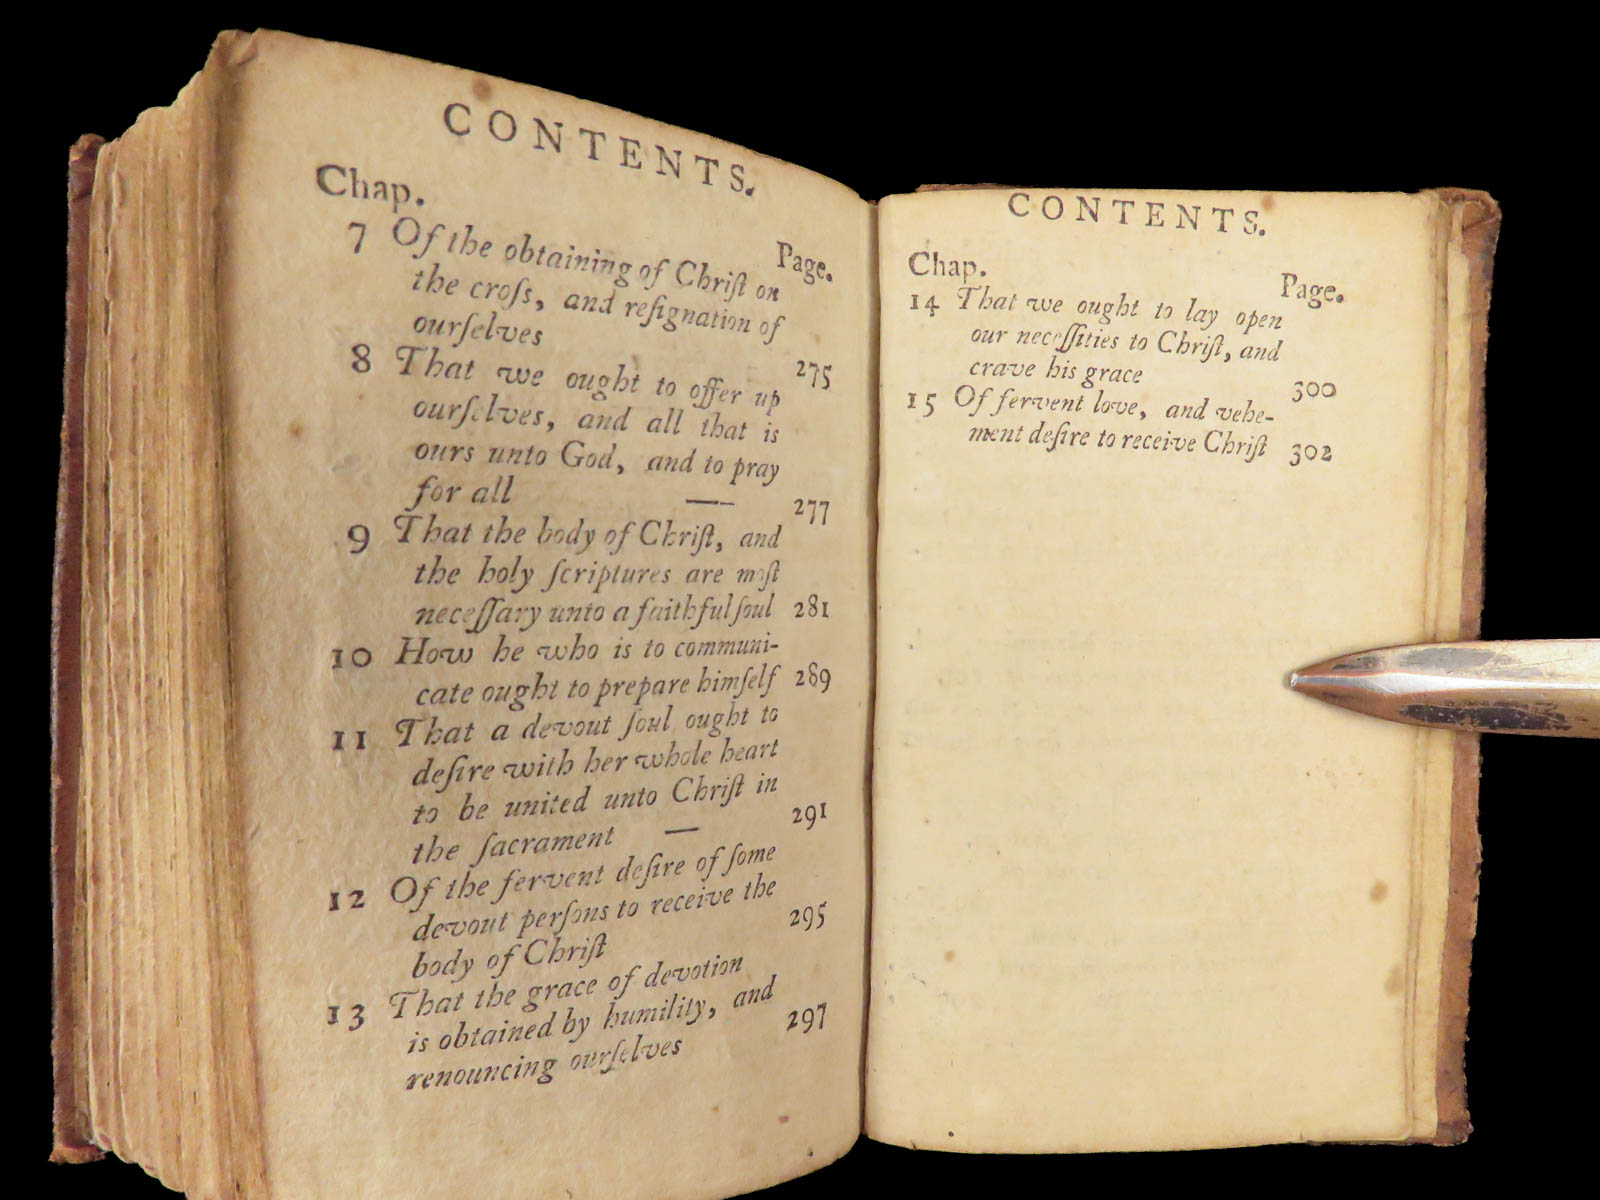 CONTENTS.
Chap.
Page.
7 Of the obtaining of Chriſt on
the croſs, and reſignation of
ourſelves 275
8 That we ought to offer up
ourſelves, and all that is
ours unto God, and to pray
for all — 277
9 That the body of Chriſt, and
the holy ſcriptures are moſt
neceſſary unto a faithful ſoul 281
10 How he who is to communi-
cate ought to prepare himſelf 289
11 That a devout ſoul ought to
deſire with her whole heart
to be united unto Chriſt in
the ſacrament — 291
12 Of the fervent deſire of ſome
devout perſons to receive the
body of Chriſt 295
13 That the grace of devotion
is obtained by humility, and
renouncing ourſelves 297
CONTENTS.
Chap.
Page.
14 That we ought to lay open
our neceſſities to Chriſt, and
crave his grace 300
15 Of fervent love, and vehe-
ment deſire to receive Chriſt 302